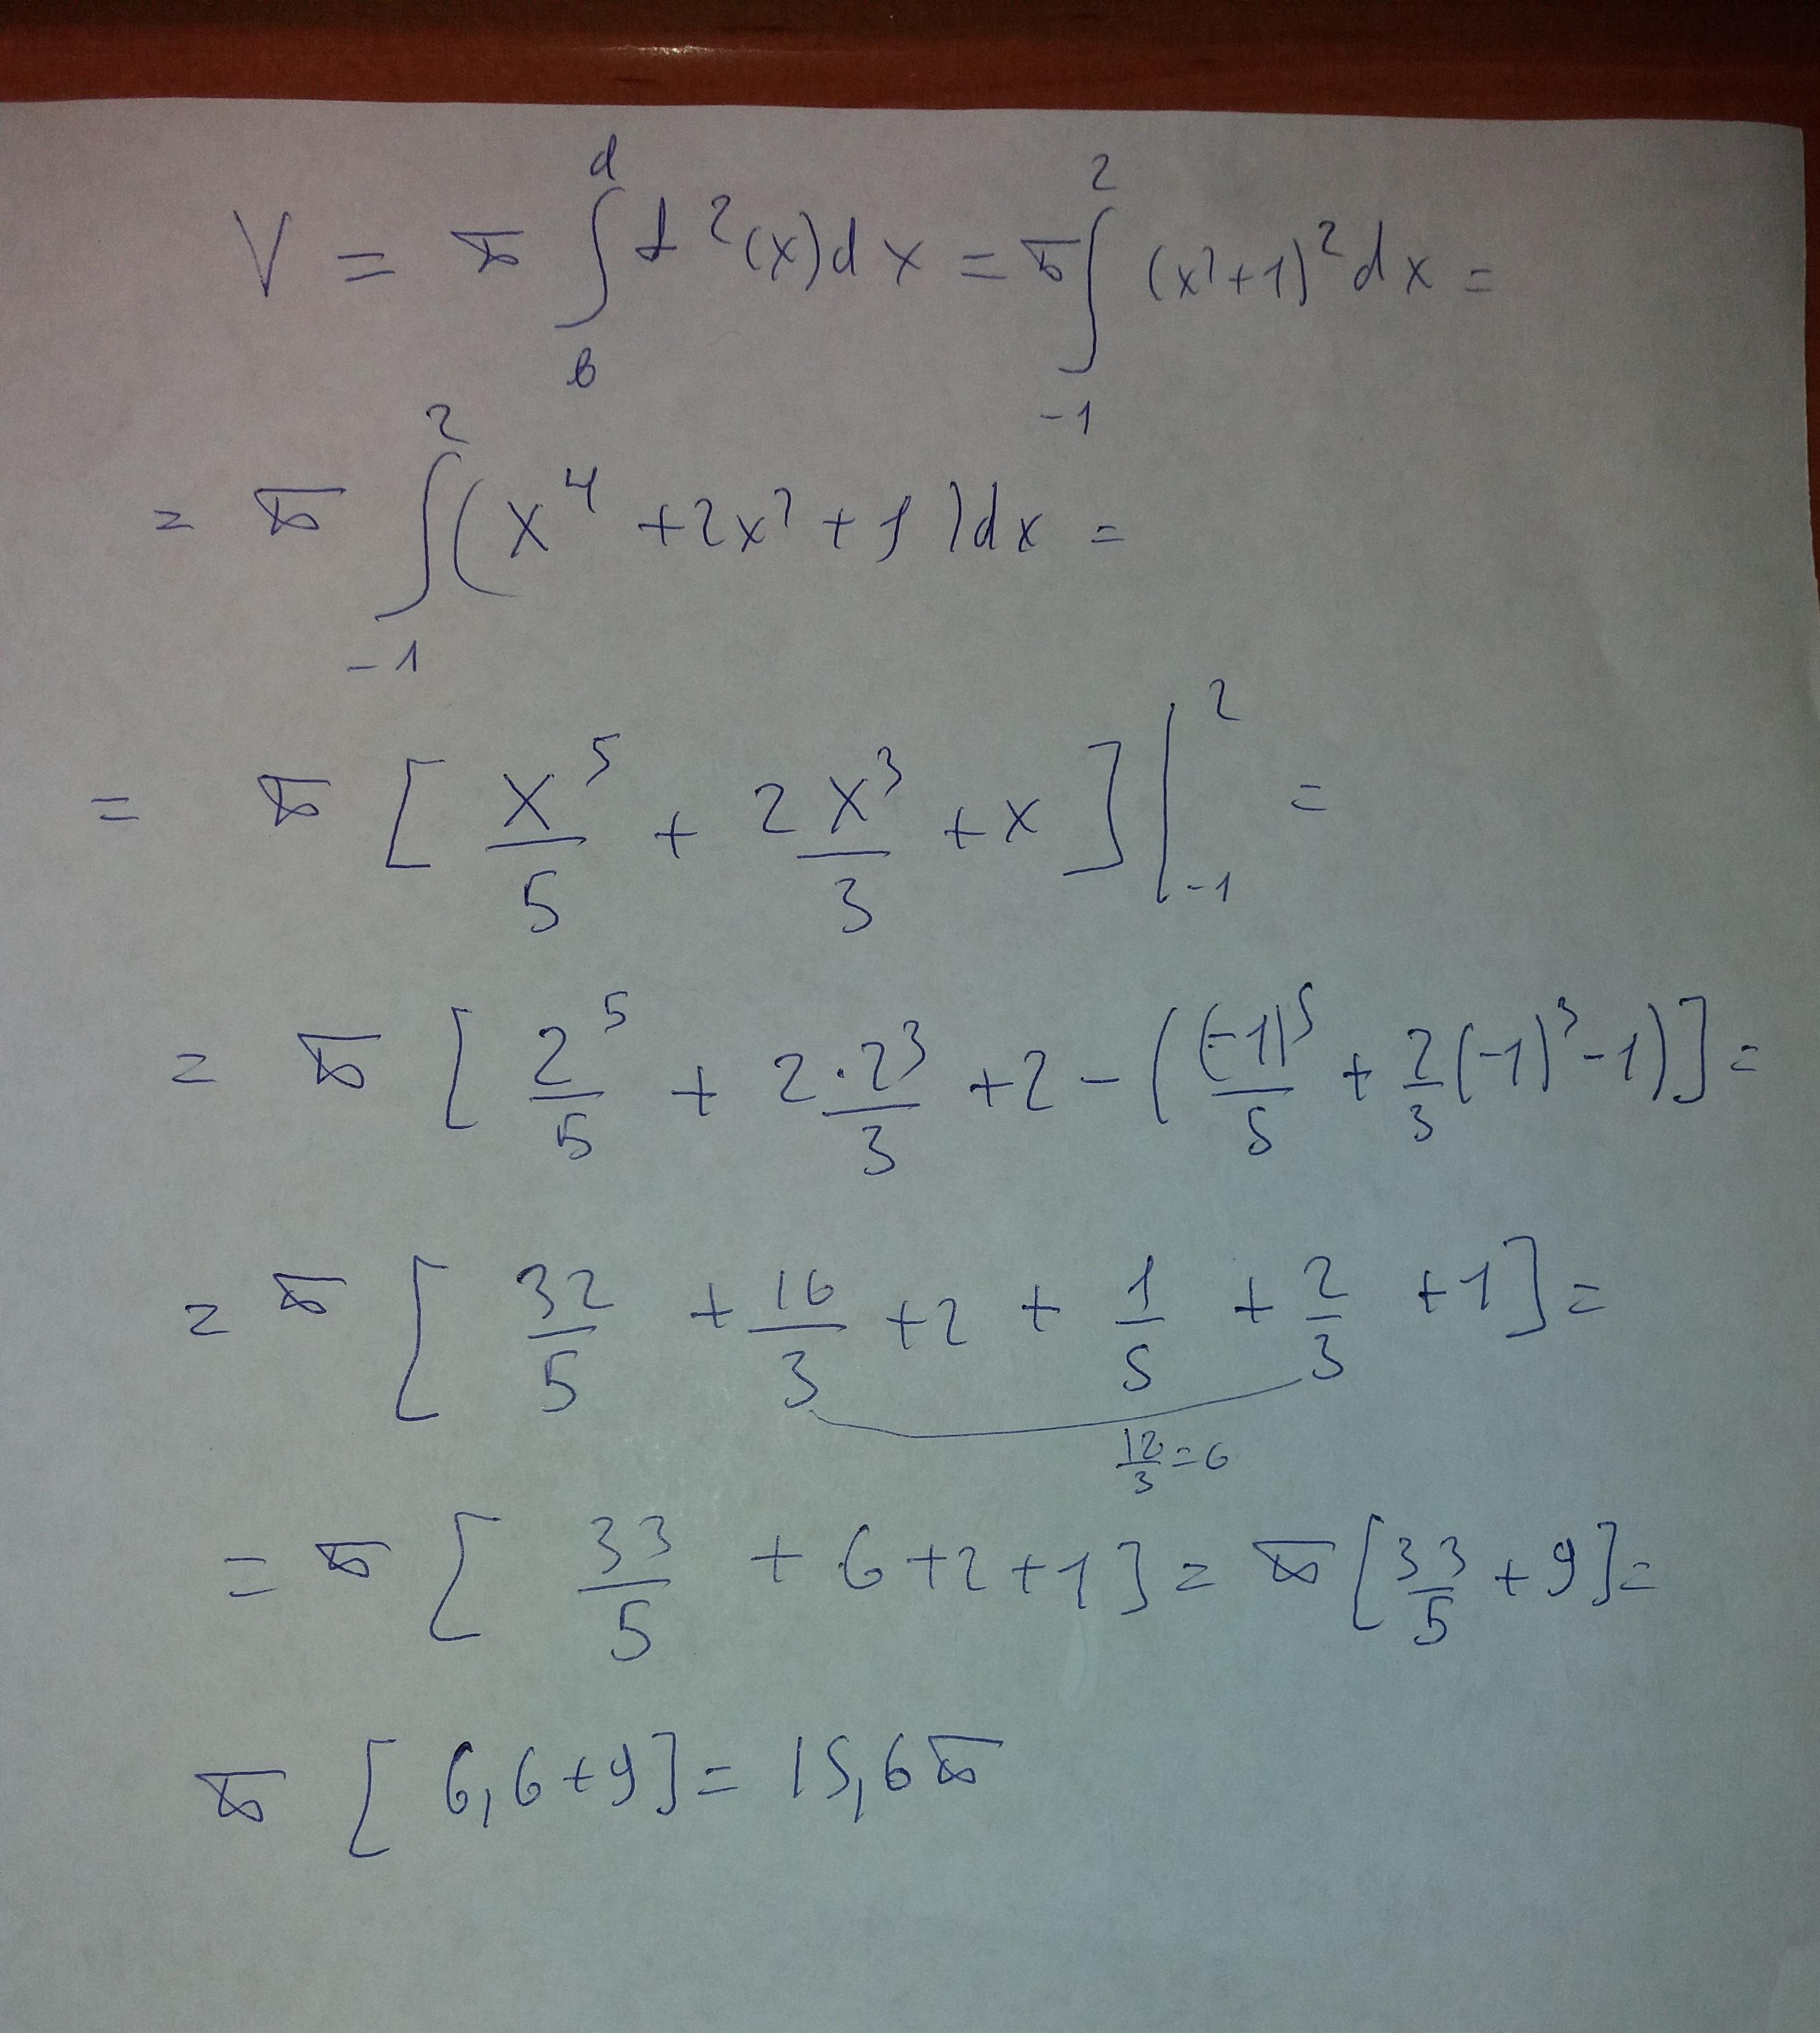 V = π ∫_b^a f²(x)dx = π ∫_{-1}^2 (x²+1)²dx =
= π ∫_{-1}^2 (x⁴ + 2x² + 1)dx =
= π [x⁵/5 + 2x³/3 + x] |_{-1}^2 =
= π [2⁵/5 + 2·2³/3 + 2 - ((-1)⁵/5 + 2/3(-1)³ - 1)] =
= π [32/5 + 16/3 + 2 + 1/5 + 2/3 + 1] =
18/3 = 6
= π [33/5 + 6 + 2 + 1] = π [33/5 + 9] =
π [6,6 + 9] = 15,6π